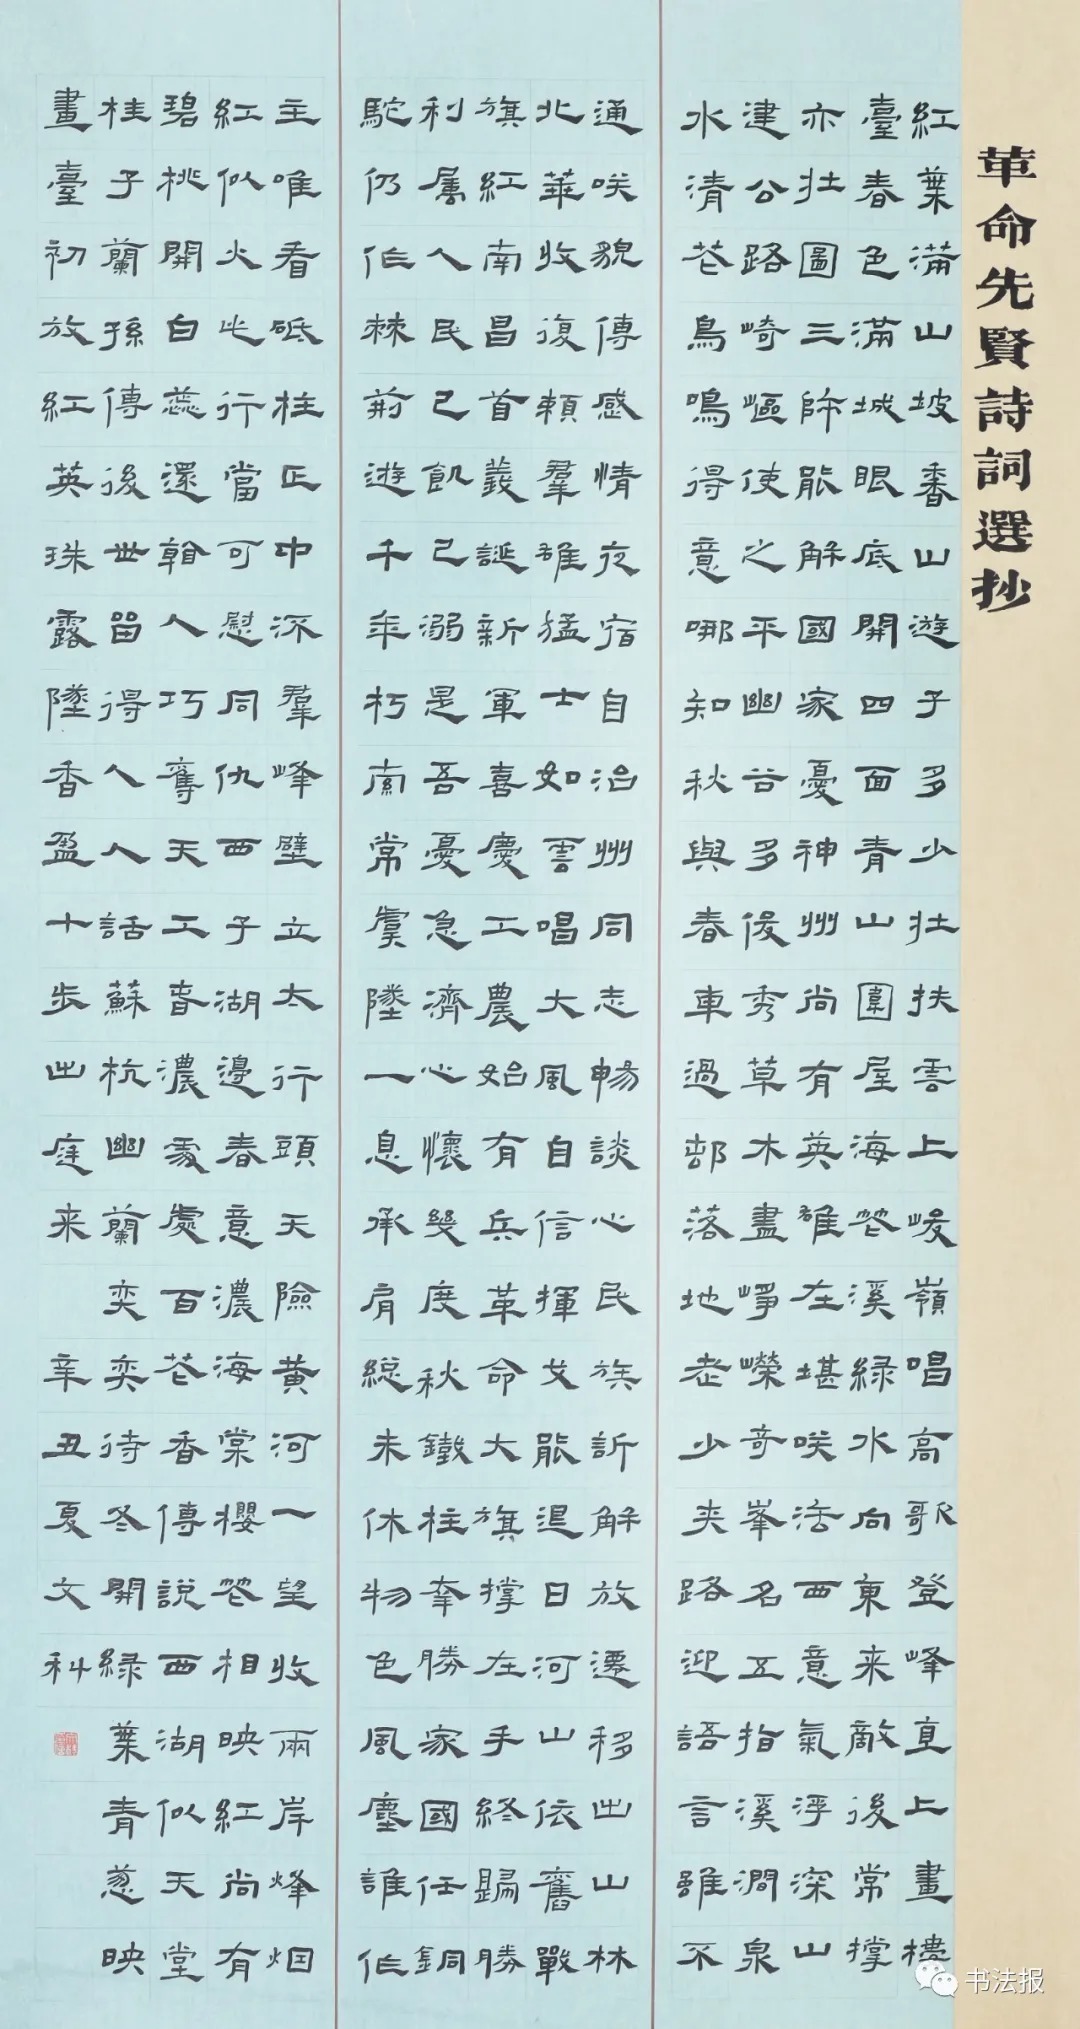 革命先賢詩詞選抄
紅葉滿山坡香山遊子多少壯扶雲上峻嶺唱高歌登峰直上畫樓
臺春色滿城眼底開四面青山圍屋海花溪緑水向東来敵後常撐
亦壯圖三師能解國家憂神州尚有英雄在堪咲法西意氣浮深山
建公路崎嶇使之平幽谷多俊秀草木盡崢嶸奇峯名五指溪澗泉
水清花鳥鳴得意哪知秋與春車過邨落地老少夾路迎語言雖不
通咲貌傳感情夜宿自治州同志暢談心民族訢解放遷移出山林
北華收復賴羣雄猛士如雲唱大風自信揮戈能退日河山依舊戰
旗紅南昌首義誕新軍喜慶工農始有兵革命大旗撐在手終歸勝
利属人民己飢己溺是吾憂急濟心懷幾度秋鐵柱幸勝家國任銅
駝仍作棘荊遊千年朽索常虞墜一息承肩總未休物色風塵誰作
主唯看砥柱正中流羣峰壁立太行頭天險黄河一望收兩岸烽烟
紅似火此行當可慰同仇西子湖邊春意濃海棠櫻花相映紅尚有
碧桃開白蕊還輸人巧奪天工春濃處處百花香傳說西湖似天堂
桂子蘭孫傳後世留得人人話蘇杭幽蘭奕奕待冬開緑葉青蔥映
畫臺初放紅英珠露墜香盈十步出庭来 辛丑夏文科
书法报